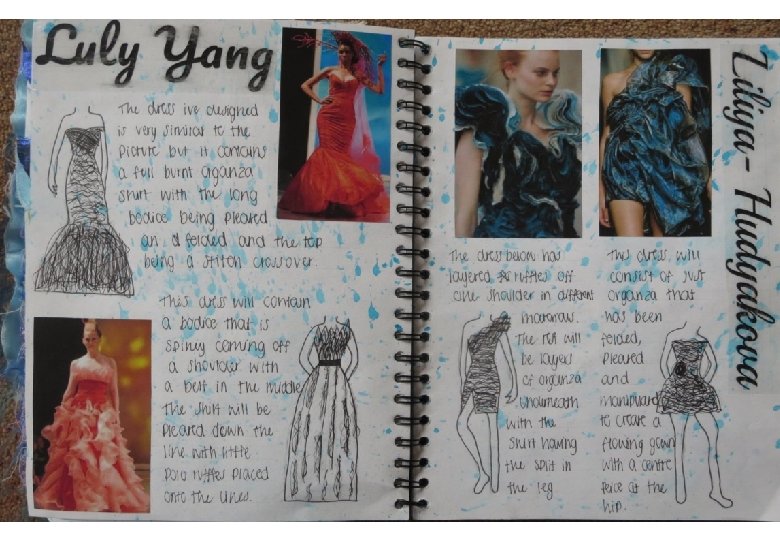 Luly Yang
The dress ive designed
is very similar to the
picture but it contains
a full burnt organza
skirt with the long
bodice being pleared
and folded and the top
being a stitch crossover.
This dress will contain
a bodice that is
spiney coming off
a shoulder with
a belt in the middle
The skirt will be
pleared down the
line with little
ruffles placed
onto the lines.
Liliya-Hudyakova
The dress below has
layered ruffles off
one shoulder in different
The rest will
be layers
of organza
underneath
with the
skirt having
the split in
the leg
This dress will
consist of just
organza that
has been
felded,
pleared
and
to create a
flowing gown
with a centre
peice at the
hip.